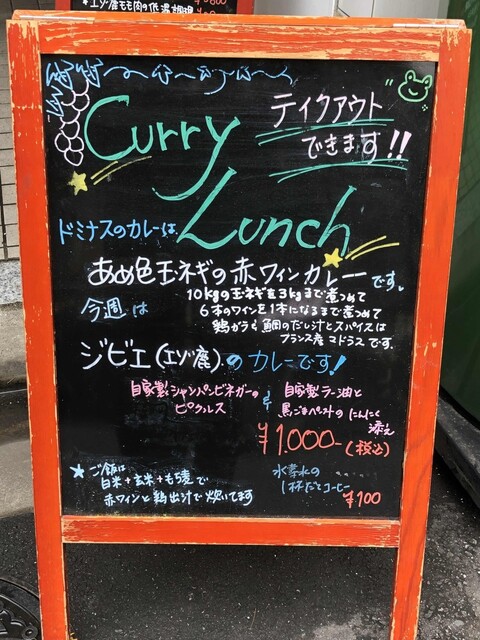 Curry
Lunch
テイクアウト
できます!!
ドミナスのカレーは
あめ色玉ネギの赤ワインカレーです。
10kgの玉ネギを3kgまで煮つめて
今週は
6本のワインを1本になるまで煮つめて
鶏ガラと鯛のだし汁とスパイスは
フランス産マドラスです。
ジビエ(エゾ鹿)のカレーです!
自家製シャンパンビネガーの
ピクルス
&
自家製ラー油と
黒ごまペーストのにんにく
添え
¥1.000-(税込)
★ご飯は
白米+玄米+もち麦で
赤ワインと鶏出汁で炊いてます
1杯だてコーヒー
¥100